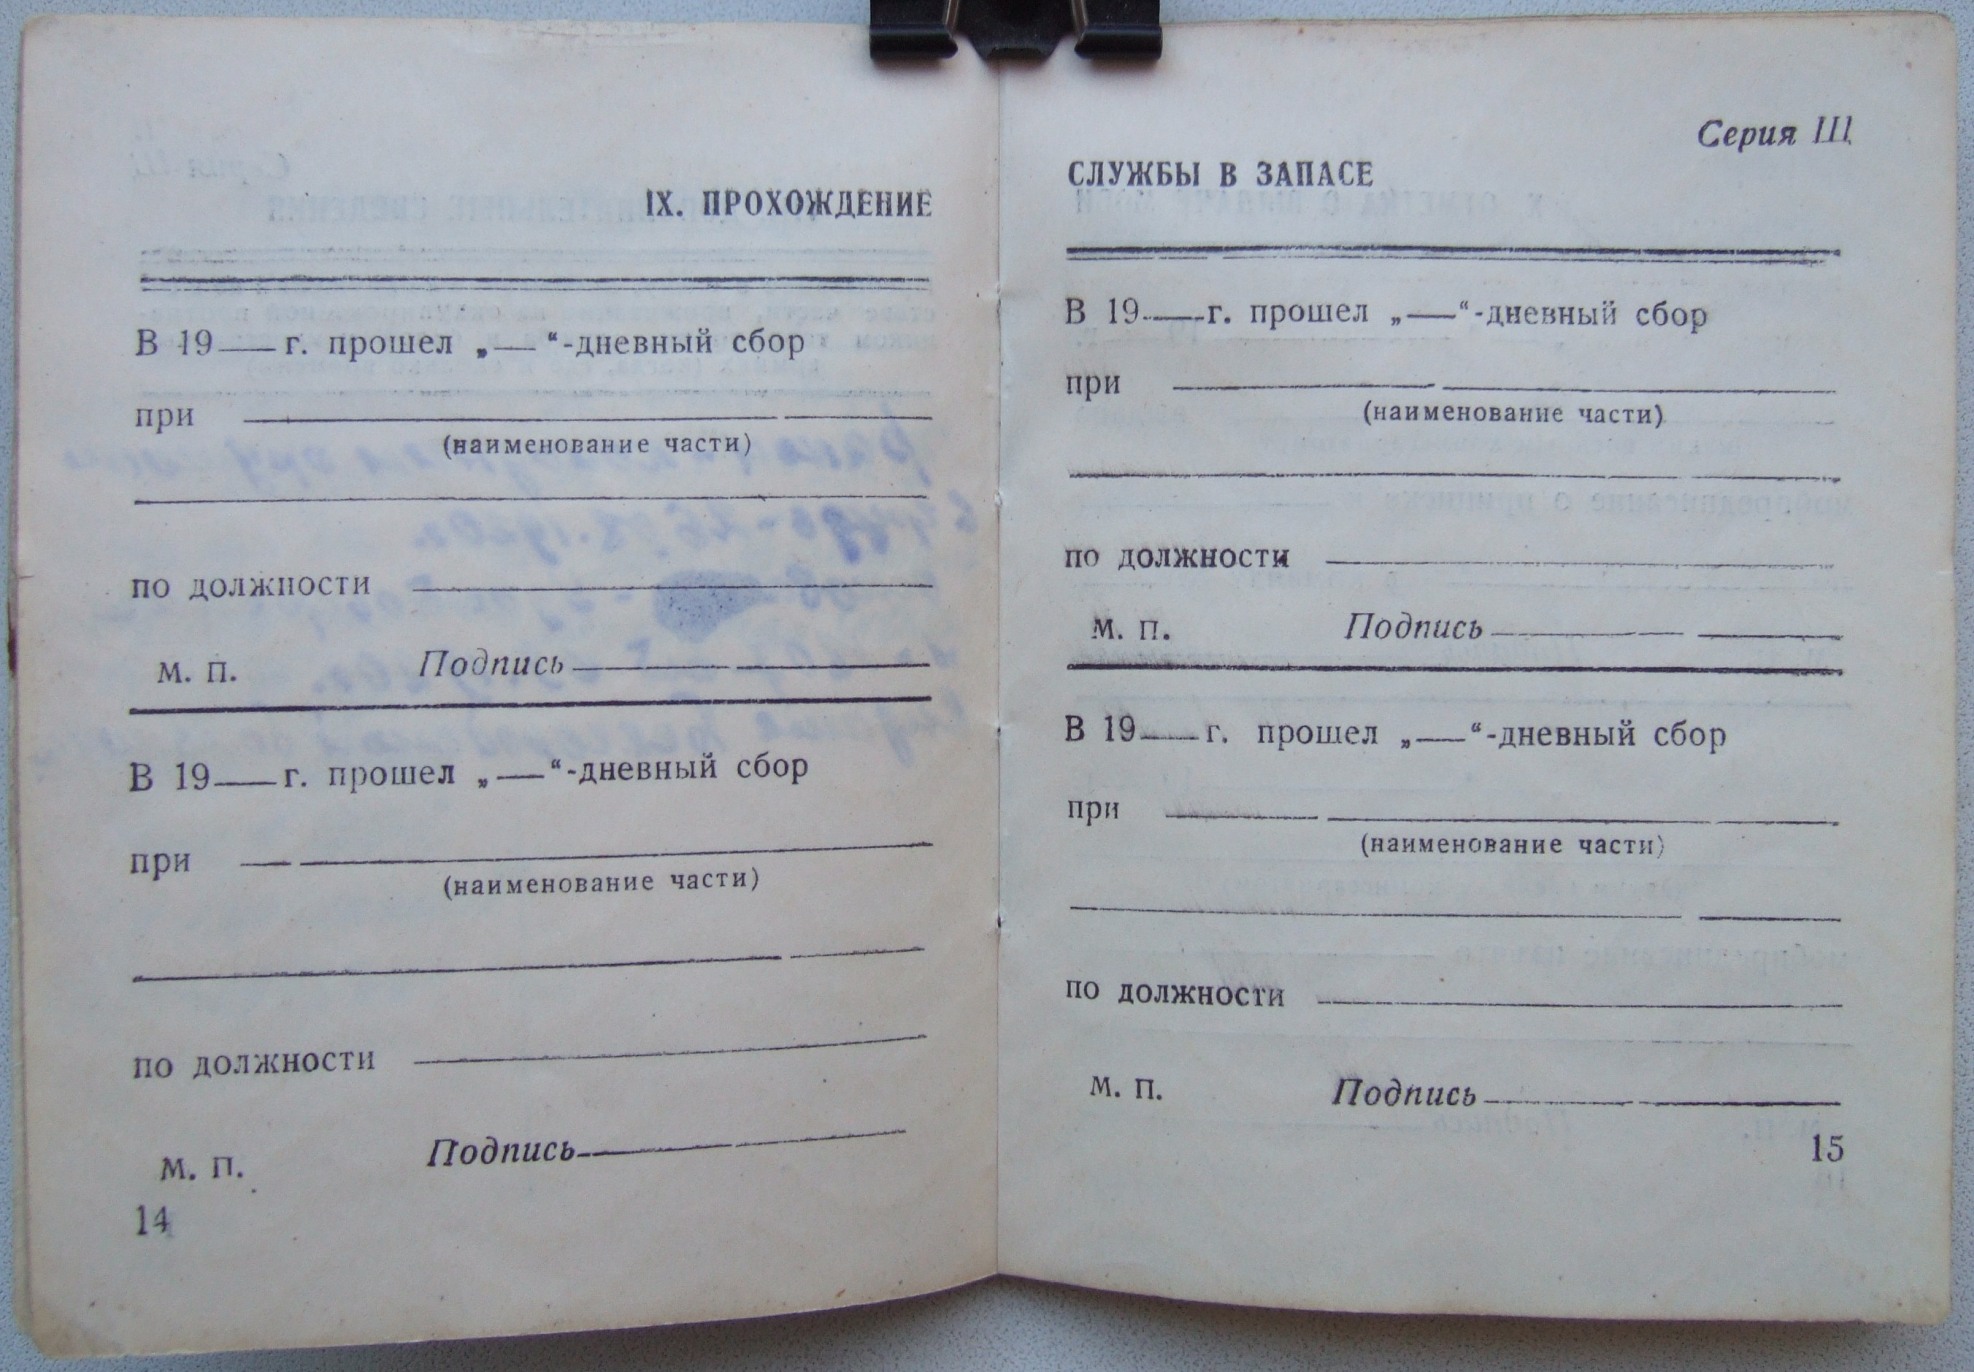 IX. ПРОХОЖДЕНИЕ
В 19 г. прошел „—“-дневный сбор
при
(наименование части)
по должности
М. П. Подпись
В 19 г. прошел „—“-дневный сбор
при
(наименование части)
по должности
М. П. Подпись
14
Серия Щ
СЛУЖБЫ В ЗАПАСЕ
В 19 г. прошел „—“-дневный сбор
при
(наименование части)
по должности
М. П. Подпись
В 19 г. прошел „—“-дневный сбор
при
(наименование части)
по должности
М. П. Подпись
15